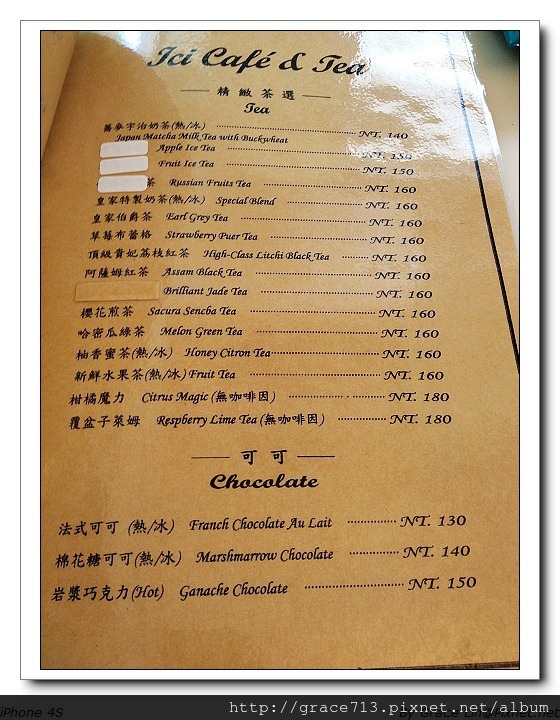 Ici Café & Tea
精緻茶選
Tea
蕎麥宇治奶茶(熱/冰) NT. 140
Japan Matcha Milk Tea with Buckwheat
Apple Ice Tea NT. 150
Fruit Ice Tea NT. 150
茶 Russian Fruits Tea NT. 160
皇家特製奶茶(熱/冰) Special Blend NT. 160
皇家伯爵茶 Earl Grey Tea NT. 160
草莓布蕾格 Strawberry Puer Tea NT. 160
頂級貴妃荔枝紅茶 High-Class Litchi Black Tea NT. 160
阿薩姆紅茶 Assam Black Tea NT. 160
Brilliant Jade Tea NT. 160
櫻花煎茶 Sacura Sencba Tea NT. 160
哈密瓜綠茶 Melon Green Tea NT. 160
柚香蜜茶(熱/冰) Honey Citron Tea NT. 160
新鮮水果茶(熱/冰) Fruit Tea NT. 160
柑橘魔力 Citrus Magic (無咖啡因) NT. 180
覆盆子萊姆 Respberry Lime Tea (無咖啡因) NT. 180
可可
Chocolate
法式可可 (熱/冰) Franch Chocolate Au Lait NT. 130
棉花糖可可(熱/冰) Marshmarrow Chocolate NT. 140
岩漿巧克力(Hot) Ganache Chocolate NT. 150
iPhone 4S
http://grace713.pixnet.net/album